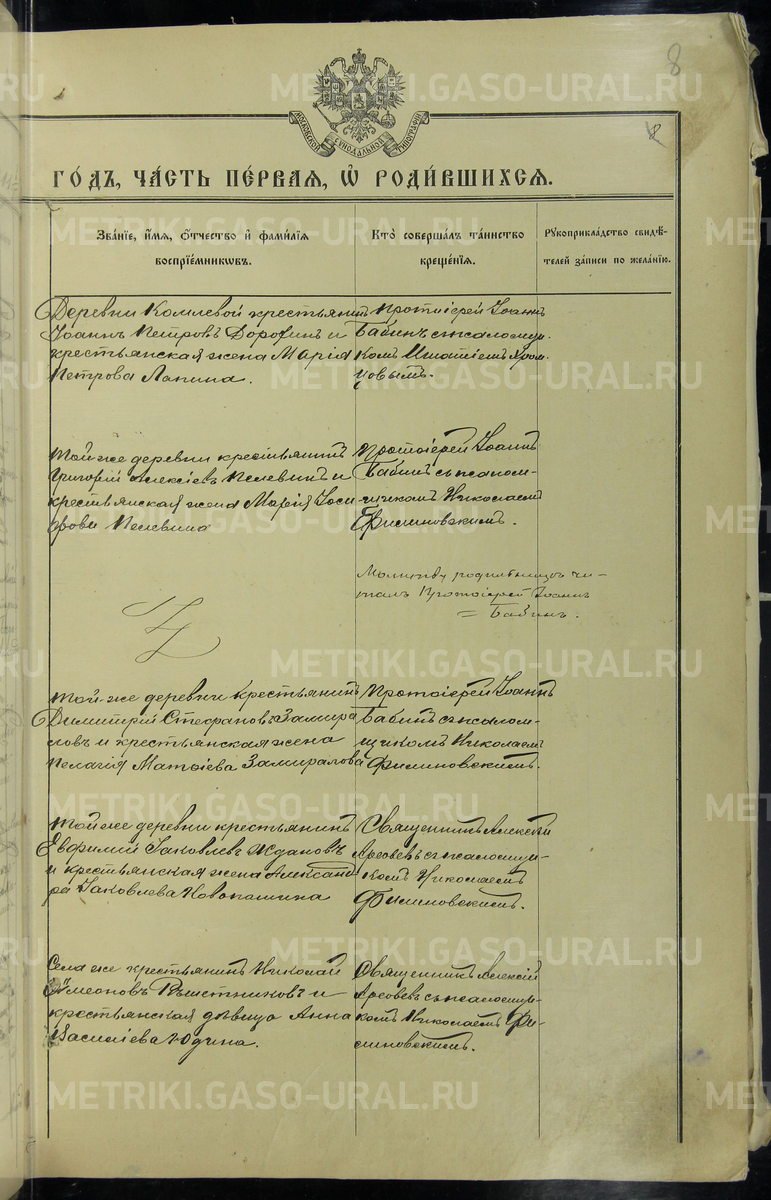 8
8
МОСКОВСКОЙ СѴНОДАЛЬНОЙ ТИПОГРАФІИ
ГО́ДЪ, ЧА́СТЬ ПЕ́РВАЯ, Ѽ РОДИ́ВШИХСЯ.
ЗВА́НІЕ, И҆́МЯ, Ѻ҆́ТЧЕСТВО И҆ ФАМИ́ЛІЯ
ВОСПРІЕ́МНИКѠВЪ.
КТО̀ СОВЕРША́ЛЪ ТА́ИНСТВО
КРЕЩЕ́НІЯ.
РꙊКОПРИКЛА́ДСТВО СВИДѢ́-
ТЕЛЕЙ ЗА́ПИСИ ПО ЖЕЛА́НІЮ.
Деревни крестьянинъ
Іоаннъ Петровъ Дорофинъ и
крестьянская жена Марія
Петрова Лапина.
Протоіерей Іоаннъ
Бабинъ съ псаломщи-
комъ Игнатіемъ Хром-
цовымъ.
Той-же деревни крестьянинъ
Григорій Алексіевъ Пелевинъ и
крестьянская жена Марія
Пелевина
Протоіерей Іоаннъ
Бабинъ съ псалом-
щикомъ Николаемъ
Филиновскимъ.
Молитву родительницѣ чи-
талъ Протоіерей Іоаннъ
= Бабинъ.
Той-же деревни крестьянинъ
Димитрій Стефановъ Замира-
ловъ и крестьянская жена
Пелагія Матѳіева Замиралова
Протоіерей Іоаннъ
Бабинъ съ псалом-
щикомъ Николаемъ
Филиновскимъ.
Той же деревни крестьянинъ
Евфимій Іаковлевъ Ждановъ
и крестьянская жена Александ
ра Іаковлева Новопашина
Священникъ Алексѣй
Арефьевъ съ псаломщи-
комъ Николаемъ
Филиновскимъ.
Села же крестьянинъ Николай
Сѵмеоновъ Рѣшетниковъ и
крестьянская дѣвица Анна
Василіева Юдина.
Священникъ Алексій
Арефьевъ съ псаломщи-
комъ Николаемъ Фи-
линовскимъ.
METRIKI.GASO-URAL.RU